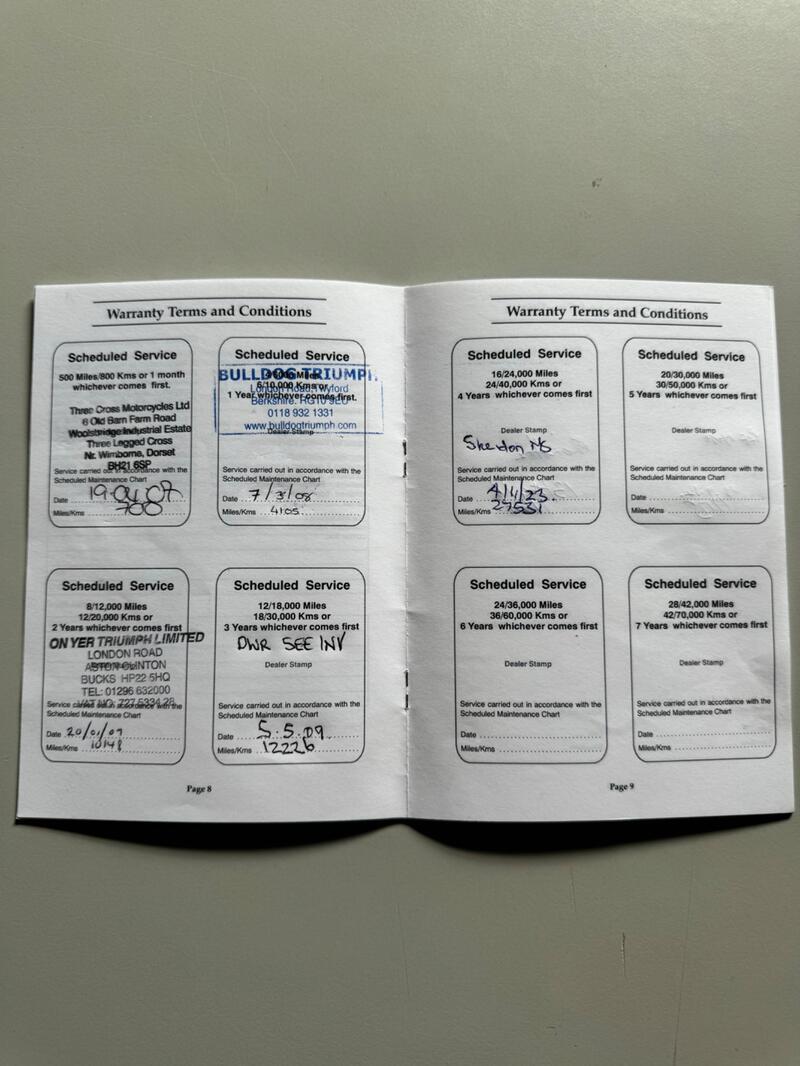 Warranty Terms and Conditions
Scheduled Service
500 Miles/800 Kms or 1 month
whichever comes first.
Three Cross Motorcycles Ltd
6 Old Barn Farm Road
Woolsbridge Industrial Estate
Three Legged Cross
Nr. Wimborne, Dorset
BH21 6SP
Service carried out in accordance with the
Scheduled Maintenance Chart
Date 19.04.07
Miles/Kms 700
Scheduled Service
BULLDOG TRIUMPH.
6/10,000 Kms or
London Road, Twyford
1 Year whichever comes first.
Berkshire. RG10 9EU
0118 932 1331
Dealer Stamp
www.bulldogtriumph.com
Service carried out in accordance with the
Scheduled Maintenance Chart
Date 7/3/08
Miles/Kms 4105
Scheduled Service
8/12,000 Miles
12/20,000 Kms or
2 Years whichever comes first
ON YER TRIUMPH LIMITED
LONDON ROAD
ASTON CLINTON
BUCKS HP22 5HQ
TEL: 01296 632000
Service carried out in accordance with the
Scheduled Maintenance Chart
Date 20/01/09
Miles/Kms 10148
Scheduled Service
12/18,000 Miles
18/30,000 Kms or
3 Years whichever comes first
DWR SEE INV
Dealer Stamp
Service carried out in accordance with the
Scheduled Maintenance Chart
Date 5.5.09
Miles/Kms 12226
Page 8
Warranty Terms and Conditions
Scheduled Service
16/24,000 Miles
24/40,000 Kms or
4 Years whichever comes first
Dealer Stamp
Service carried out in accordance with the
Scheduled Maintenance Chart
Date 4/1/23
Miles/Kms 27531
Scheduled Service
20/30,000 Miles
30/50,000 Kms or
5 Years whichever comes first
Dealer Stamp
Service carried out in accordance with the
Scheduled Maintenance Chart
Date
Miles/Kms
Scheduled Service
24/36,000 Miles
36/60,000 Kms or
6 Years whichever comes first
Dealer Stamp
Service carried out in accordance with the
Scheduled Maintenance Chart
Date
Miles/Kms
Scheduled Service
28/42,000 Miles
42/70,000 Kms or
7 Years whichever comes first
Dealer Stamp
Service carried out in accordance with the
Scheduled Maintenance Chart
Date
Miles/Kms
Page 9